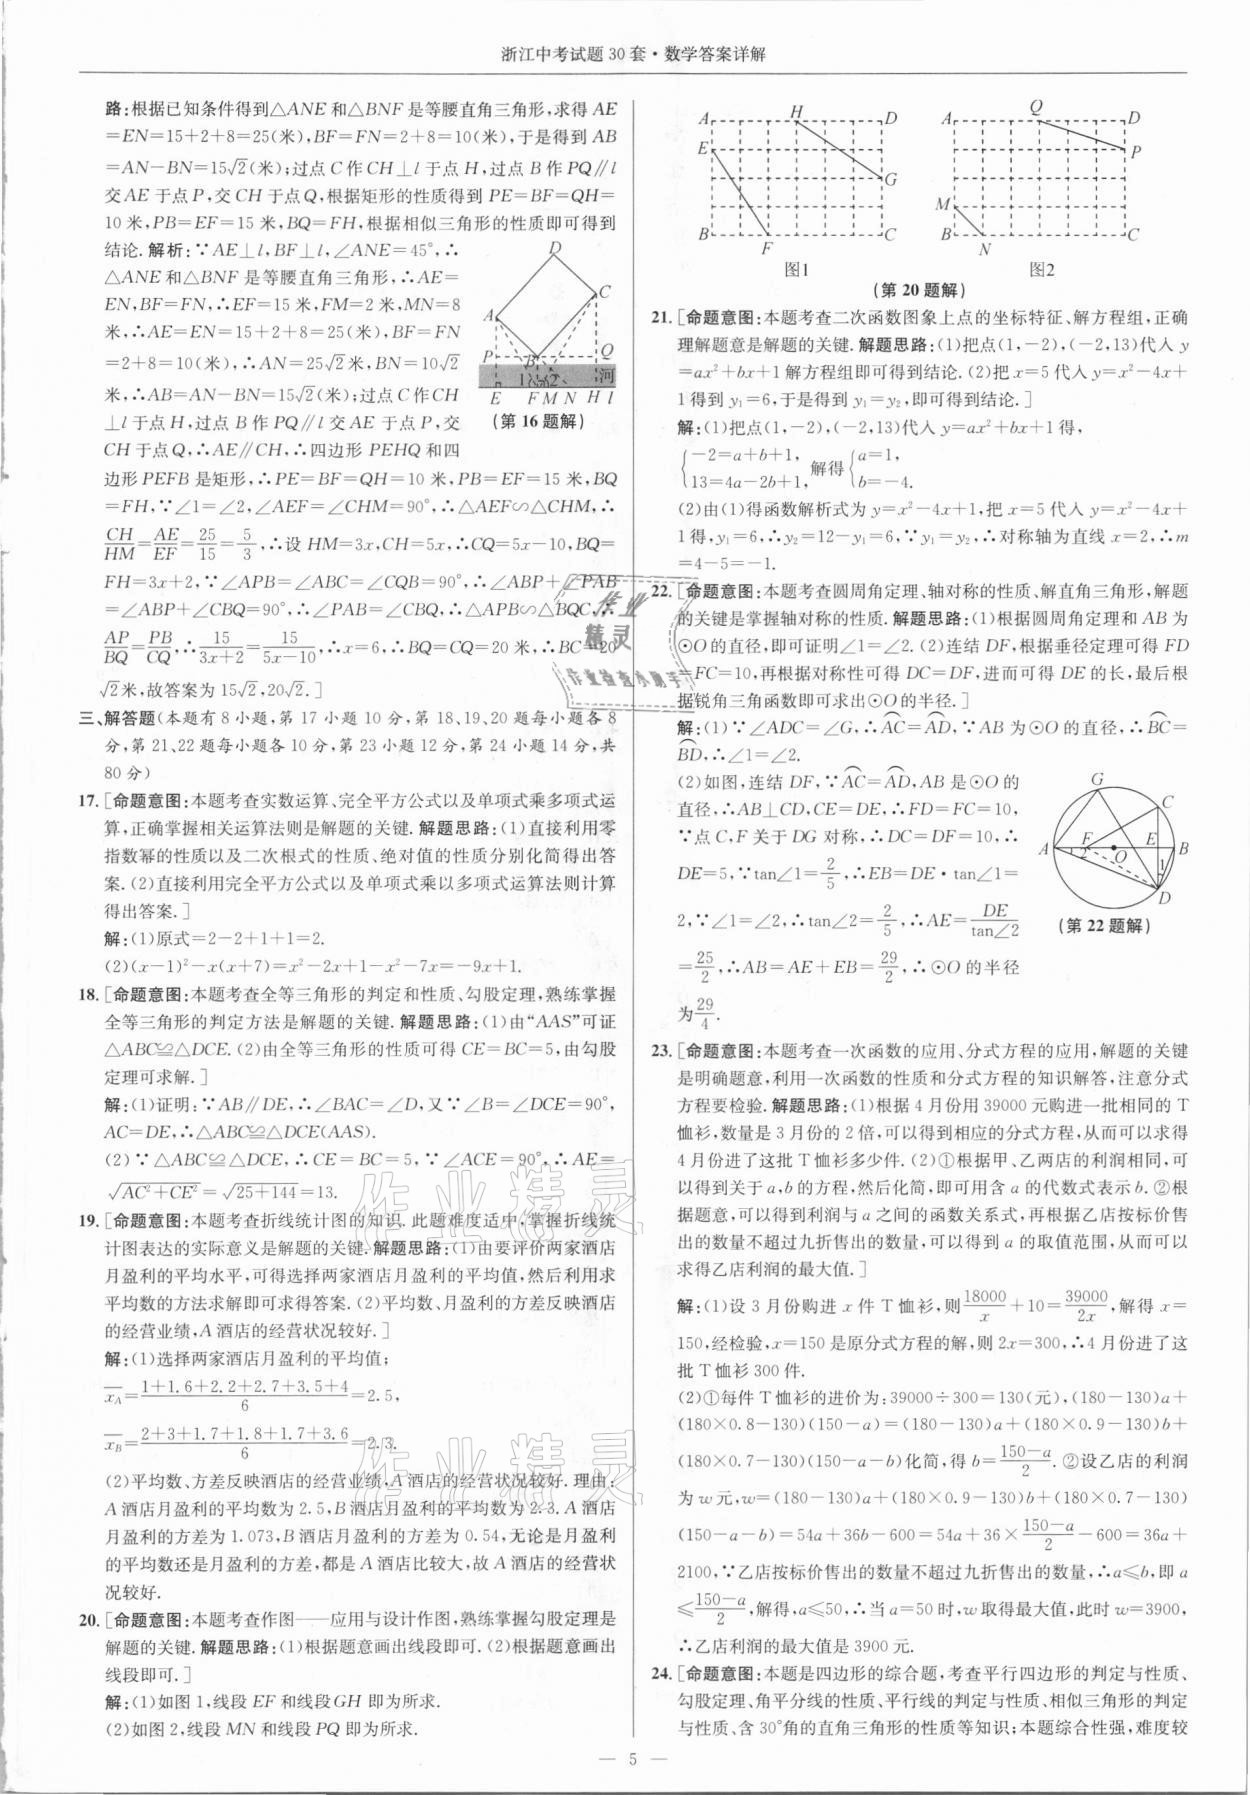 浙江中考试题30套·数学答案详解
路:根据已知条件得到△ANE和△BNF是等腰直角三角形,求得AE
=EN=15+2+8=25(米),BF=FN=2+8=10(米),于是得到AB
=AN-BN=15√2(米);过点C作CH⊥l于点H,过点B作PQ∥l
交AE于点P,交CH于点Q,根据矩形的性质得到PE=BF=QH=
10米,PB=EF=15米,BQ=FH,根据相似三角形的性质即可得到
结论.解析:∵AE⊥l,BF⊥l,∠ANE=45°,∴
△ANE和△BNF是等腰直角三角形,∴AE=
EN,BF=FN,∴EF=15米,FM=2米,MN=8
米,∴AE=EN=15+2+8=25(米),BF=FN
=2+8=10(米),∴AN=25√2米,BN=10√2
米,∴AB=AN-BN=15√2(米);过点C作CH
⊥l于点H,过点B作PQ∥l交AE于点P,交
CH于点Q,∴AE∥CH,∴四边形PEHQ和四
边形PEFB是矩形,∴PE=BF=QH=10米,PB=EF=15米,BQ
=FH,∵∠1=∠2,∠AEF=∠CHM=90°,∴△AEF∽△CHM,∴
CH/HM=AE/EF=25/15=5/3,∴设HM=3x,CH=5x,∴CQ=5x-10,BQ=
FH=3x+2,∵∠APB=∠ABC=∠CQB=90°,∴∠ABP+∠PAB
=∠ABP+∠CBQ=90°,∴∠PAB=∠CBQ,∴△APB∽△BQC,∴
AP/BQ=PB/CQ,∴15/(3x+2)=15/(5x-10),∴x=6,∴BQ=CQ=20米,∴BC=20
√2米,故答案为15√2,20√2.]
D
C
A
P
B
Q
1
2
河
E F M N H l
(第16题解)
三、解答题(本题有8小题,第17小题10分,第18、19、20题每小题各8
分,第21、22题每小题各10分,第23小题12分,第24小题14分,共
80分)
17.[命题意图:本题考查实数运算、完全平方公式以及单项式乘多项式运
算,正确掌握相关运算法则是解题的关键.解题思路:(1)直接利用零
指数幂的性质以及二次根式的性质、绝对值的性质分别化简得出答
案.(2)直接利用完全平方公式以及单项式乘以多项式运算法则计算
得出答案.]
解:(1)原式=2-2+1+1=2.
(2)(x-1)²-x(x+7)=x²-2x+1-x²-7x=-9x+1.
18.[命题意图:本题考查全等三角形的判定和性质、勾股定理,熟练掌握
全等三角形的判定方法是解题的关键.解题思路:(1)由“AAS”可证
△ABC≌△DCE.(2)由全等三角形的性质可得CE=BC=5,由勾股
定理可求解.]
解:(1)证明:∵AB∥DE,∴∠BAC=∠D,又∵∠B=∠DCE=90°,
AC=DE,∴△ABC≌△DCE(AAS).
(2)∵△ABC≌△DCE,∴CE=BC=5,∵∠ACE=90°,∴AE=
√(AC²+CE²)=√(25+144)=13.
19.[命题意图:本题考查折线统计图的知识.此题难度适中,掌握折线统
计图表达的实际意义是解题的关键.解题思路:(1)由要评价两家酒店
月盈利的平均水平,可得选择两家酒店月盈利的平均值,然后利用求
平均数的方法求解即可求得答案.(2)平均数、月盈利的方差反映酒店
的经营业绩,A酒店的经营状况较好.]
解:(1)选择两家酒店月盈利的平均值;
x̄_A=(1+1.6+2.2+2.7+3.5+4)/6=2.5,
x̄_B=(2+3+1.7+1.8+1.7+3.6)/6=2.3.
(2)平均数、方差反映酒店的经营业绩,A酒店的经营状况较好.理由:
A酒店月盈利的平均数为2.5,B酒店月盈利的平均数为2.3.A酒店
月盈利的方差为1.073,B酒店月盈利的方差为0.54,无论是月盈利
的平均数还是月盈利的方差,都是A酒店比较大,故A酒店的经营状
况较好.
20.[命题意图:本题考查作图——应用与设计作图,熟练掌握勾股定理是
解题的关键.解题思路:(1)根据题意画出线段即可.(2)根据题意画出
线段即可.]
解:(1)如图1,线段EF和线段GH即为所求.
(2)如图2,线段MN和线段PQ即为所求.
A H D
E
G
B F C
图1
A Q D
P
M
B N C
图2
(第20题解)
21.[命题意图:本题考查二次函数图象上点的坐标特征、解方程组,正确
理解题意是解题的关键.解题思路:(1)把点(1,-2),(-2,13)代入y
=ax²+bx+1解方程组即可得到结论.(2)把x=5代入y=x²-4x+
1得到y₁=6,于是得到y₁=y₂,即可得到结论.]
解:(1)把点(1,-2),(-2,13)代入y=ax²+bx+1得,
{-2=a+b+1, 13=4a-2b+1,解得{a=1, b=-4.
(2)由(1)得函数解析式为y=x²-4x+1,把x=5代入y=x²-4x+
1得,y₁=6,∴y₂=12-y₁=6,∵y₁=y₂,∴对称轴为直线x=2,∴m
=4-5=-1.
22.[命题意图:本题考查圆周角定理、轴对称的性质、解直角三角形,解题
的关键是掌握轴对称的性质.解题思路:(1)根据圆周角定理和AB为
⊙O的直径,即可证明∠1=∠2.(2)连结DF,根据垂径定理可得FD
=FC=10,再根据对称性可得DC=DF,进而可得DE的长,最后根
据锐角三角函数即可求出⊙O的半径.]
解:(1)∵∠ADC=∠G,∴AC⌒=AD⌒,∵AB为⊙O的直径,∴BC⌒=
BD⌒,∴∠1=∠2.
(2)如图,连结DF,∵AC⌒=AD⌒,AB是⊙O的
直径,∴AB⊥CD,CE=DE,∴FD=FC=10,
∵点C,F关于DG对称,∴DC=DF=10,∴
DE=5,∵tan∠1=2/5,∴EB=DE·tan∠1=
2,∵∠1=∠2,∴tan∠2=2/5,∴AE=DE/tan∠2
=25/2,∴AB=AE+EB=29/2,∴⊙O的半径
为29/4.
G
C
A
F
2
O
E
B
1
D
(第22题解)
23.[命题意图:本题考查一次函数的应用、分式方程的应用,解题的关键
是明确题意,利用一次函数的性质和分式方程的知识解答,注意分式
方程要检验.解题思路:(1)根据4月份用39000元购进一批相同的T
恤衫,数量是3月份的2倍,可以得到相应的分式方程,从而可以求得
4月份进了这批T恤衫多少件.(2)①根据甲、乙两店的利润相同,可
以得到关于a,b的方程,然后化简,即可用含a的代数式表示b.②根
据题意,可以得到利润与a之间的函数关系式,再根据乙店按标价售
出的数量不超过九折售出的数量,可以得到a的取值范围,从而可以
求得乙店利润的最大值.]
解:(1)设3月份购进x件T恤衫,则18000/x+10=39000/2x,解得x=
150,经检验,x=150是原分式方程的解,则2x=300,∴4月份进了这
批T恤衫300件.
(2)①每件T恤衫的进价为:39000÷300=130(元),(180-130)a+
(180×0.8-130)(150-a)=(180-130)a+(180×0.9-130)b+
(180×0.7-130)(150-a-b)化简,得b=(150-a)/2.②设乙店的利润
为w元,w=(180-130)a+(180×0.9-130)b+(180×0.7-130)
(150-a-b)=54a+36b-600=54a+36×(150-a)/2-600=36a+
2100,∵乙店按标价售出的数量不超过九折售出的数量,∴a≤b,即a
≤(150-a)/2,解得,a≤50,∴当a=50时,w取得最大值,此时w=3900,
∴乙店利润的最大值是3900元.
24.[命题意图:本题是四边形的综合题,考查平行四边形的判定与性质、
勾股定理、角平分线的性质、平行线的判定与性质、相似三角形的判定
与性质、含30°角的直角三角形的性质等知识;本题综合性强,难度较
— 5 —
作业
精灵
作业检查小助手
作业精灵
作业精灵